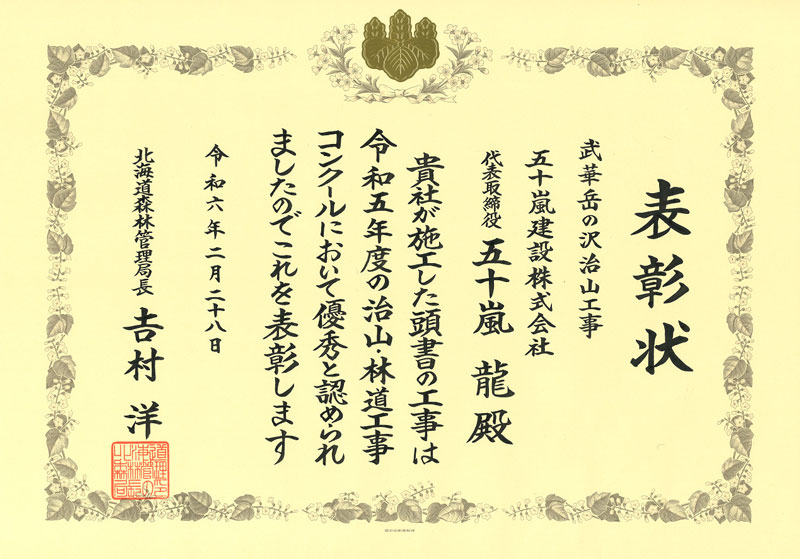 表彰状
武華岳の沢治山工事
五十嵐建設株式会社
代表取締役 五十嵐 龍殿
貴社が施工した頭書の工事は
令和五年度の治山・林道工事
コンクールにおいて優秀と認められ
ましたのでこれを表彰します
令和六年二月二十八日
北海道森林管理局長 吉村 洋